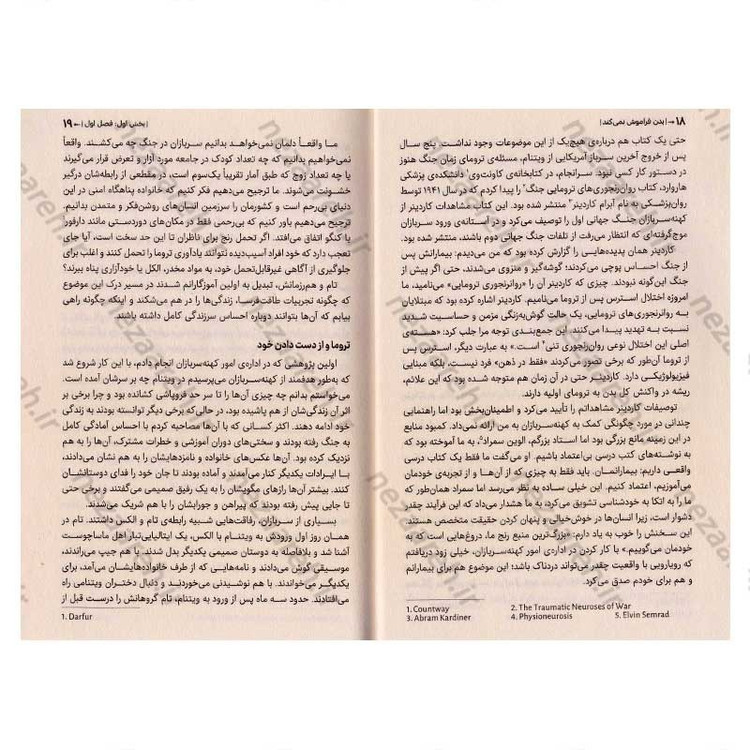 ۱۸ → | بدن فراموش نمی‌کند |
حتی یک کتاب هم درباره‌ی هیچ‌یک از این موضوعات وجود نداشت. پنج سال
پس از خروج آخرین سرباز آمریکایی از ویتنام، مسئله‌ی ترومای زمان جنگ هنوز
در دستور کار کسی نبود. سرانجام، در کتابخانه‌ی کاونت‌وی¹ دانشکده‌ی پزشکی
هاروارد، کتاب روان‌رنجوری‌های ترومایی جنگ² را پیدا کردم که در سال ۱۹۴۱ توسط
روان‌پزشکی به نام آبرام کاردینر³ منتشر شده بود. این کتاب مشاهدات کاردینر از
کهنه‌سربازان جنگ جهانی اول را توصیف می‌کرد و در آستانه‌ی ورود سربازان
موج‌گرفته‌ای که انتظار می‌رفت از تلفات جنگ جهانی دوم باشند، منتشر شده بود.
کاردینر همان پدیده‌هایی را گزارش کرده بود که من می‌دیدم: بیمارانش پس
از جنگ احساس پوچی می‌کردند؛ گوشه‌گیر و منزوی می‌شدند، حتی اگر پیش از
جنگ این‌گونه نبودند. چیزی که کاردینر آن را «روانرنجوری ترومایی» می‌نامید، ما
امروزه اختلال استرس پس از تروما می‌نامیم. کاردینر اشاره کرده بود که مبتلایان
به روانرنجوری‌های ترومایی، یک حالت گوش‌به‌زنگی مزمن و حساسیت شدید
نسبت به تهدید پیدا می‌کنند. این جمع‌بندی توجه مرا جلب کرد: «هسته‌ی
اصلی این اختلال نوعی روان‌رنجوری تنی⁴ است.» به عبارت دیگر، استرس پس
از تروما آن‌طور که برخی تصور می‌کردند «فقط در ذهن» فرد نیست، بلکه مبنایی
فیزیولوژیکی دارد. کاردینر حتی در آن زمان هم متوجه شده بود که این علائم،
ریشه در واکنش کل بدن به ترومای اولیه دارند.
توصیفات کاردینر مشاهداتم را تأیید می‌کرد و اطمینان‌بخش بود اما راهنمایی
چندانی در مورد چگونگی کمک به کهنه‌سربازان به من ارائه نمی‌داد. کمبود منابع
در این زمینه مانع بزرگی بود اما استاد بزرگم، الوین سمراد⁵، به ما آموخته بود که
به نوشته‌های کتب درسی بی‌اعتماد باشیم. او می‌گفت ما فقط یک کتاب درسی
واقعی داریم: بیمارانمان. باید فقط به چیزی که از آن‌ها و از تجربه‌ی خودمان
می‌آموزیم، اعتماد کنیم. این خیلی ساده به نظر می‌رسد اما سمراد همان‌طور که
ما را به اتکا به خودشناسی تشویق می‌کرد، به ما هشدار می‌داد که این فرآیند چقدر
دشوار است، زیرا انسان‌ها در خوش‌خیالی و پنهان کردن حقیقت متخصص هستند.
این سخنش را خوب به یاد دارم: «بزرگ‌ترین منبع رنج ما، دروغ‌هایی است که به
خودمان می‌گوییم.» با کار کردن در اداره‌ی امور کهنه‌سربازان، خیلی زود دریافتم
که رویارویی با واقعیت چقدر می‌تواند دردناک باشد؛ این موضوع هم برای بیمارانم
و هم برای خودم صدق می‌کرد.
1. Countway 2. The Traumatic Neuroses of War
3. Abram Kardiner 4. Physioneurosis 5. Elvin Semrad
| بخش اول: فصل اول | ← ۱۹
ما واقعاً دلمان نمی‌خواهد بدانیم سربازان در جنگ چه می‌کشند. واقعاً
نمی‌خواهیم بدانیم که چه تعداد کودک در جامعه مورد آزار و تعرض قرار می‌گیرند
یا چه تعداد زوج که طبق آمار تقریباً یک‌سوم است، در مقطعی از رابطه‌شان درگیر
خشونت می‌شوند. ما ترجیح می‌دهیم فکر کنیم که خانواده پناهگاه امنی در این
دنیای بی‌رحم است و کشورمان را سرزمین انسان‌های روشن‌فکر و متمدن بدانیم.
ترجیح می‌دهیم باور کنیم که بی‌رحمی فقط در مکان‌های دوردستی مانند دارفور¹
یا کنگو اتفاق می‌افتد. اگر تحمل رنج برای ناظران تا این حد سخت است، آیا جای
تعجب دارد که خود افراد آسیب‌دیده نتوانند یادآوری تروما را تحمل کنند و اغلب برای
جلوگیری از آگاهی غیرقابل‌تحمل خود، به مواد مخدر، الکل یا خودآزاری پناه ببرند؟
تام و هم‌رزمانش، تبدیل به اولین آموزگارانم شدند در مسیر درک این موضوع
که چگونه تجربیات طاقت‌فرسا، زندگی‌ها را در هم می‌شکند و اینکه چگونه راهی
بیابم که آن‌ها بتوانند دوباره احساس سرزندگی کامل داشته باشند.
تروما و از دست دادن خود
اولین پژوهشی که در اداره‌ی امور کهنه‌سربازان انجام دادم، با این کار شروع شد
که به‌طور هدفمند از کهنه‌سربازان می‌پرسیدم در ویتنام چه بر سرشان آمده است.
می‌خواستم بدانم چه چیزی آن‌ها را تا سر حد فروپاشی کشانده بود و چرا برخی بر
اثر آن زندگی‌شان از هم پاشیده بود، در حالی‌که برخی دیگر توانسته بودند به زندگی
خود ادامه دهند. اکثر کسانی که با آن‌ها مصاحبه کردم با احساس آمادگی کامل
به جنگ رفته بودند و سختی‌های دوران آموزشی و خطرات مشترک، آن‌ها را به هم
نزدیک کرده بود. آن‌ها عکس‌های خانواده و نامزدهایشان را به هم نشان می‌دادند،
با ایرادات یکدیگر کنار می‌آمدند و آماده بودند تا جان خود را فدای دوستانشان
کنند. بیشتر آن‌ها رازهای مگویشان را به یک رفیق صمیمی می‌گفتند و برخی حتی
تا جایی پیش رفته بودند که پیراهن و جورابشان را با هم شریک می‌شدند.
بسیاری از سربازان، رفاقت‌هایی شبیه رابطه‌ی تام و الکس داشتند. تام در
همان روز اول ورودش به ویتنام با الکس، یک ایتالیایی‌تبار اهل ماساچوست
آشنا شد و بلافاصله به دوستان صمیمی یکدیگر بدل شدند. با هم جیپ می‌راندند،
موسیقی گوش می‌دادند و نامه‌هایی که از طرف خانواده‌هایشان می‌آمد، برای
یکدیگر می‌خواندند. با هم نوشیدنی می‌خوردنــد و دنبال دختران ویتنامی راه
می‌افتادند. حدود سه ماه پس از ورود به ویتنام، تام گروهانش را درست قبل از
1. Darfur
nezaareh.ir